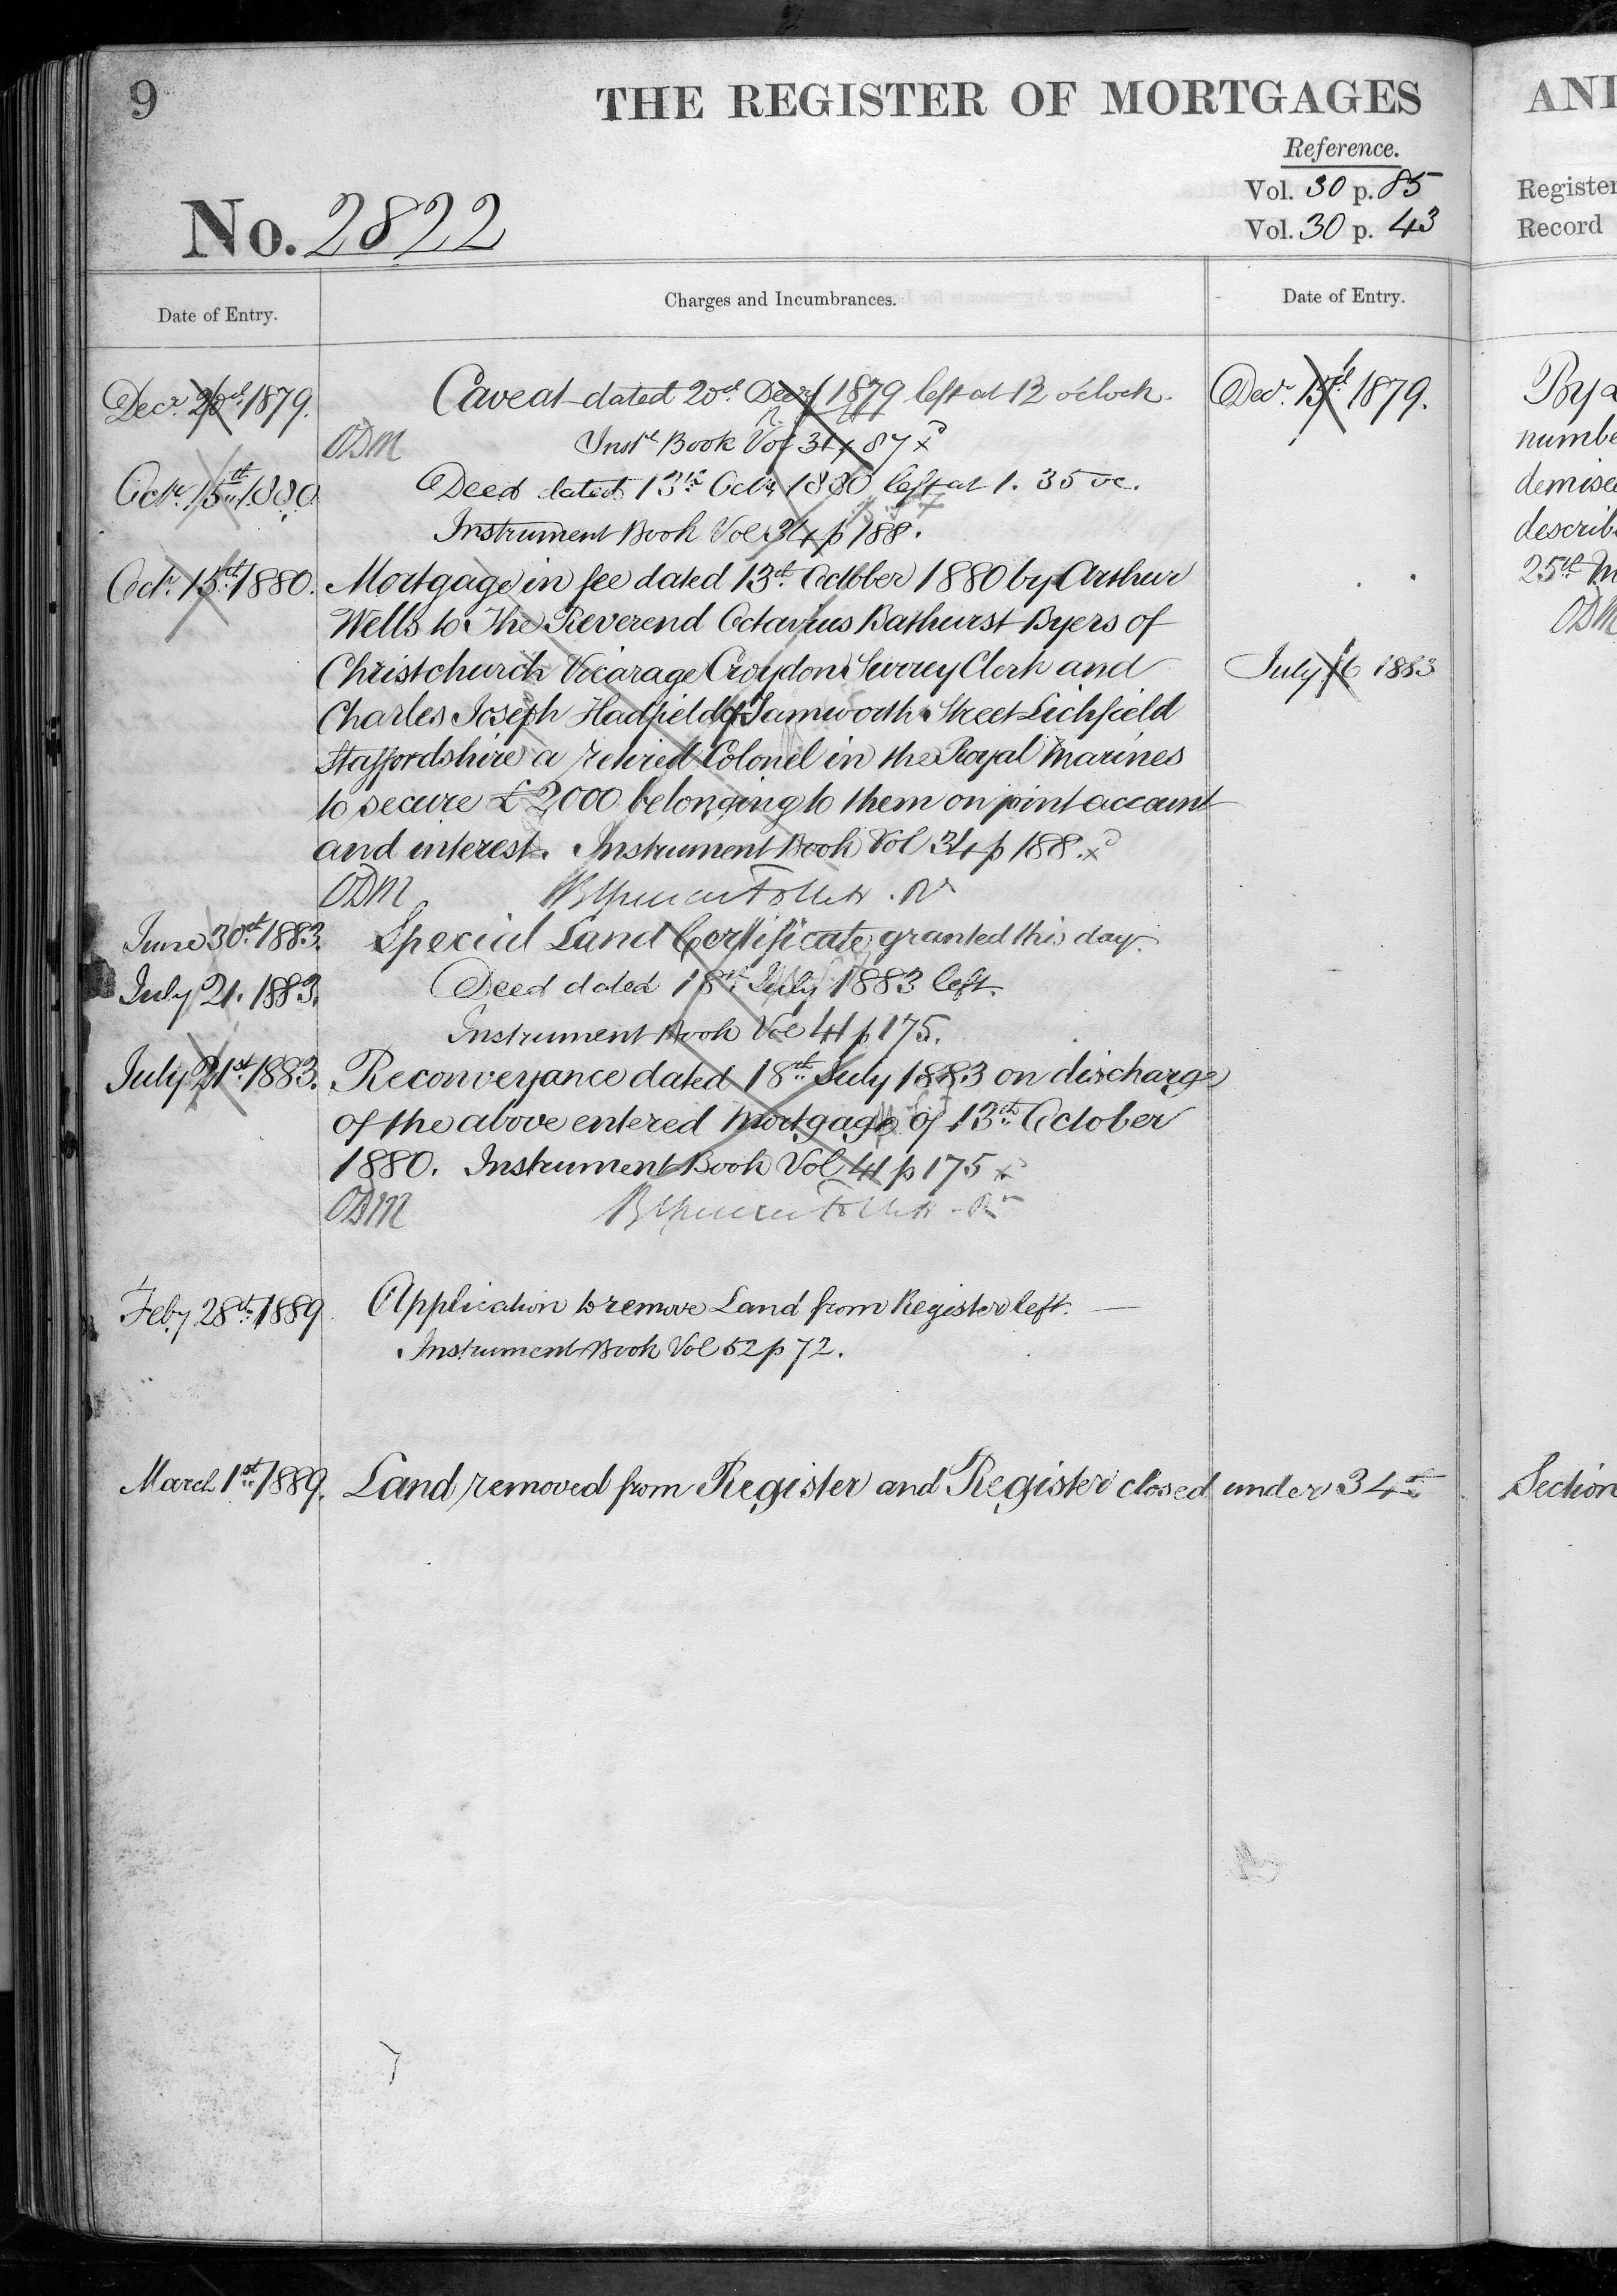 9
THE REGISTER OF MORTGAGES
Reference.
Vol. 30 p. 85
Vol. 30 p. 43
No. 2822
Date of Entry.
Charges and Incumbrances.
Date of Entry.
Decr. 20th 1879.
Caveat dated 20th Decr 1879 left at 12 o'clock.
ODM
Inst. Book Vol 34 p 87
Octr. 15th 1880
Deed dated 13th Octr 1880 left at 1.35 oc.
Instrument Book Vol 34 p 188.
Octr. 15th 1880.
Mortgage in fee dated 13th October 1880 by Arthur
Wells to The Reverend Octavius Bathurst Byers of
Christchurch Vicarage Croydon Surrey Clerk and
Charles Joseph Hadfield of Tamworth Street Lichfield
Staffordshire a retired Colonel in the Royal Marines
to secure £2,000 belonging to them on joint account
and interest. Instrument Book Vol 34 p 188.
ODM
June 30th 1883.
Special Land Certificate granted this day.
July 21. 1883.
Deed dated 18th July 1883 left.
Instrument Book Vol 41 p 175.
July 21st 1883.
Reconveyance dated 18th July 1883 on discharge
of the above entered Mortgage of 13th October
1880. Instrument Book Vol 41 p 175
ODM
Feby 28th 1889
Application to remove Land from Register left.
Instrument Book Vol 52 p 72.
March 1st 1889.
Land removed from Register and Register closed under 34th
Decr. 15th 1879.
July 16 1883
ANI
Register
Record
By a
numbe
demised
describ
25th
ODM
Section